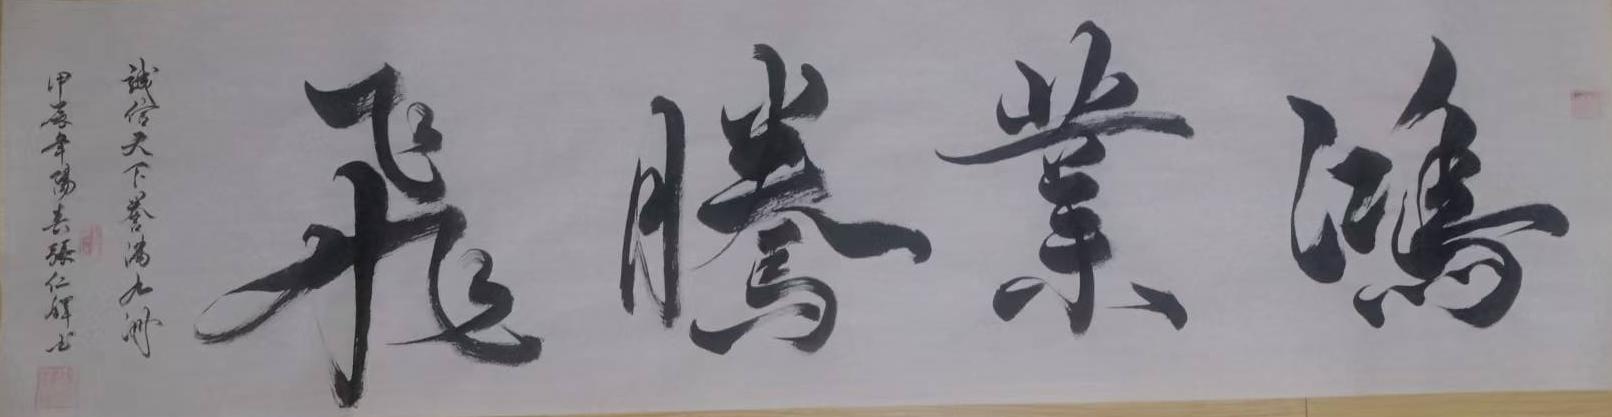 鴻業騰飛
誠信天下譽滿九洲
甲辰年陽春張仁輝书